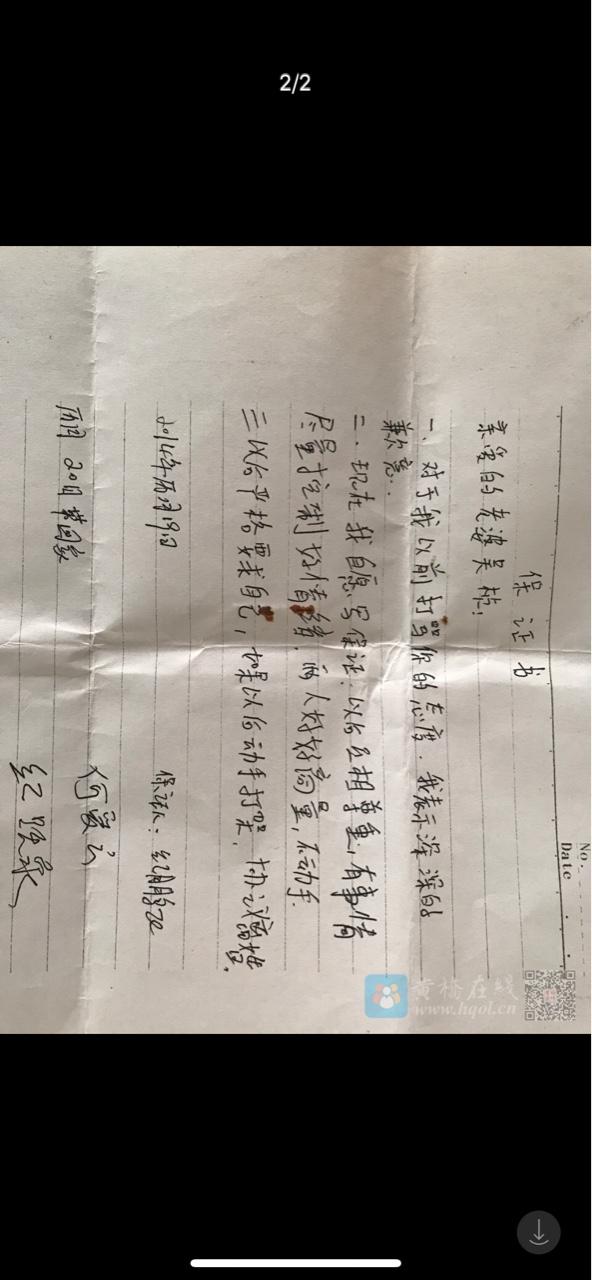 2/2
No.
Date
保证书
亲爱的老婆吴桂:
一、对于我以前打骂你的态度.我表示深深的
歉意.
二.现在我自愿写保证:以后互相尊重,有事情
尽量控制好情绪.两人好好商量,不动手.
三 以后严格要求自己,如果以后动手打架,协议离婚.
2014年 月19日
保证人:
20日
黄桥在线
www.hqol.cn